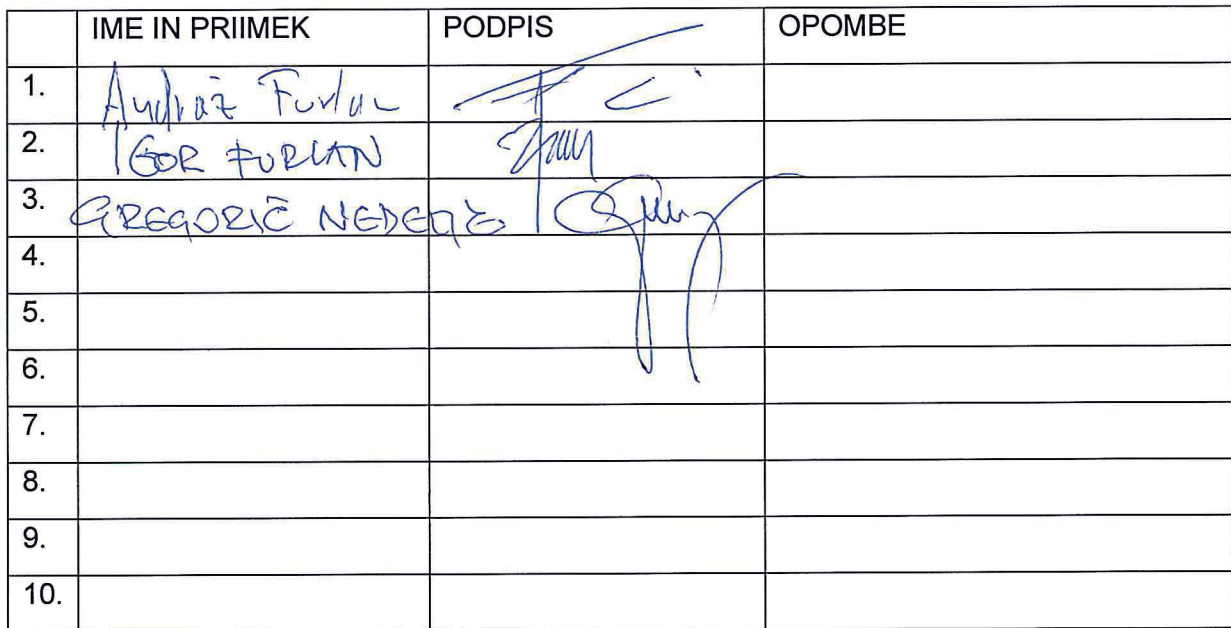 IME IN PRIIMEK PODPIS OPOMBE
1. Andraž Furlan
2. IGOR FURLAN
3. GREGORIČ
4.
5.
6.
7.
8.
9.
10.